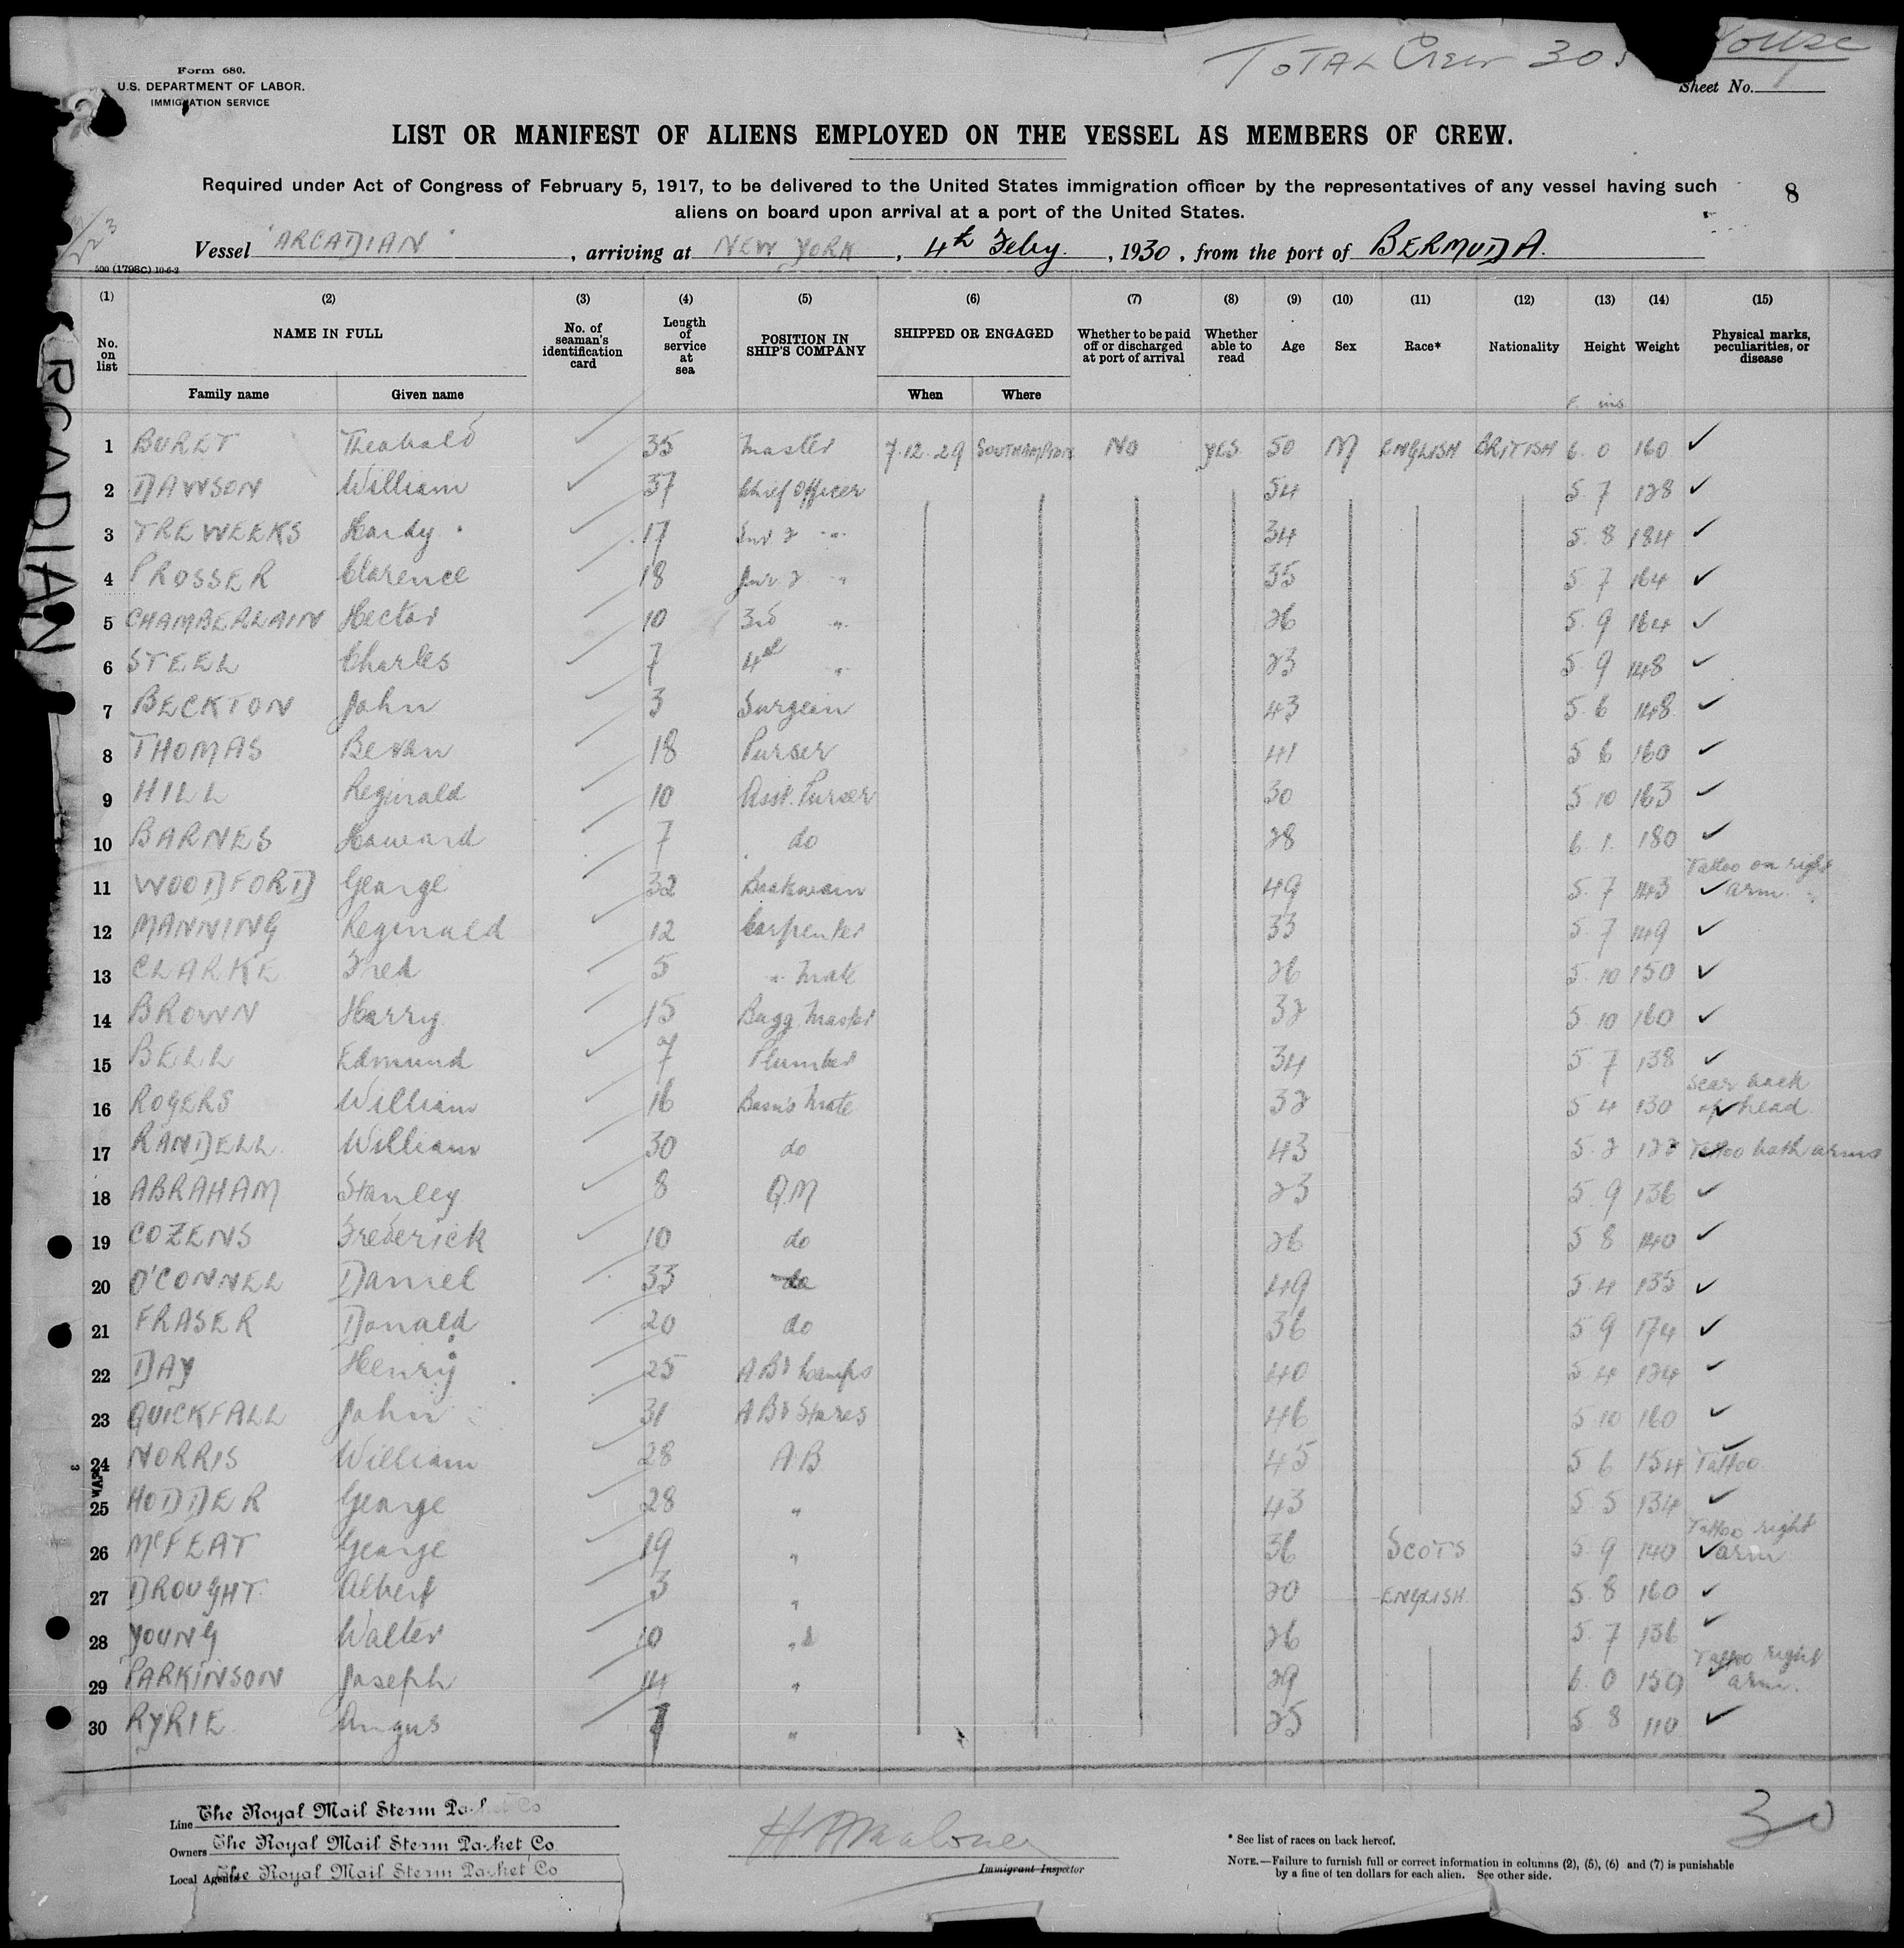 TOTAL Crew 30
Form 680.
U.S. DEPARTMENT OF LABOR.
IMMIGRATION SERVICE
Sheet No. 1
LIST OR MANIFEST OF ALIENS EMPLOYED ON THE VESSEL AS MEMBERS OF CREW.
Required under Act of Congress of February 5, 1917, to be delivered to the United States immigration officer by the representatives of any vessel having such
aliens on board upon arrival at a port of the United States.
8
Vessel "ARCADIAN", arriving at NEW YORK, 4th Feby., 1930, from the port of BERMUDA.
500 (1798C) 10-6-2
RCADIAN
(1) (2) (3) (4) (5) (6) (7) (8) (9) (10) (11) (12) (13) (14) (15)
No. on list
NAME IN FULL
Family name Given name
No. of seaman's identification card
Length of service at sea
POSITION IN SHIP'S COMPANY
SHIPPED OR ENGAGED
When Where
Whether to be paid off or discharged at port of arrival
Whether able to read
Age Sex Race* Nationality Height Weight
Physical marks, peculiarities, or disease
F. ins
1 BURET Theobald ✓ 35 Master 7.12.29 SOUTHAMPTON NO YES 50 M ENGLISH BRITISH 6. 0 160 ✓
2 DAWSON William ✓ 37 Chief Officer 54 5. 7 128 ✓
3 TREWEEKS Hardy ✓ 17 Snr 2 " 34 5. 8 184 ✓
4 PROSSER Clarence ✓ 18 Jnr 2 " 35 5 7 164 ✓
5 CHAMBERLAIN Hector ✓ 10 3rd " 26 5. 9 164 ✓
6 STEEL Charles ✓ 7 4th " 23 5 9 148 ✓
7 BECKTON John ✓ 3 Surgeon 43 5. 6 148 ✓
8 THOMAS Bevan ✓ 18 Purser 41 5 6 160 ✓
9 HILL Reginald ✓ 10 Asst. Purser 30 5 10 163 ✓
10 BARNES Howard ✓ 7 do 28 6. 1. 180 ✓
11 WOODFORD George ✓ 32 Boatswain 49 5. 7 143 ✓ Tattoo on right arm
12 MANNING Reginald ✓ 12 Carpenter 33 5. 7 149 ✓
13 CLARKE Fred ✓ 5 " Mate 26 5. 10 150 ✓
14 BROWN Harry ✓ 15 Bagg. Master 32 5 10 160 ✓
15 BELL Edmund ✓ 7 Plumber 34 5 7 138 ✓
16 ROGERS William ✓ 16 Bosn's Mate 32 5 4 130 ✓ Scar back of head
17 RANDELL William ✓ 30 do 43 5. 2 122 ✓ Tattoo both arms
18 ABRAHAM Stanley ✓ 8 Q.M 23 5. 9 136 ✓
19 COZENS Frederick ✓ 10 do 26 5 8 140 ✓
20 O'CONNEL Daniel 33 do 49 5. 4 135 ✓
21 FRASER Donald ✓ 20 do 36 5 9 174 ✓
22 DAY Henry ✓ 25 A.B. Lamps 40 5 4 124 ✓
23 QUICKFALL John 31 A.B. Stores 46 5 10 160 ✓
24 NORRIS William ✓ 28 A.B 45 5 6 154 ✓ Tattoo
25 HODDER George ✓ 28 " 43 5 5 134 ✓
26 McFEAT George ✓ 19 " 36 SCOTS 5 9 140 ✓ Tattoo right arm
27 DROUGHT Albert ✓ 3 " 20 ENGLISH 5 8 160 ✓
28 YOUNG Walter ✓ 10 " 26 5. 7 136 ✓
29 PARKINSON Joseph ✓ 14 " 29 6. 0 150 ✓ Tattoo right arm.
30 RYRIE Angus ✓ 7 " 25 5 8 110 ✓
Line The Royal Mail Steam Packet Co
Owners The Royal Mail Steam Packet Co
Local Agents The Royal Mail Steam Packet Co
Immigrant Inspector
* See list of races on back hereof.
NOTE.—Failure to furnish full or correct information in columns (2), (5), (6) and (7) is punishable
by a fine of ten dollars for each alien. See other side.
30